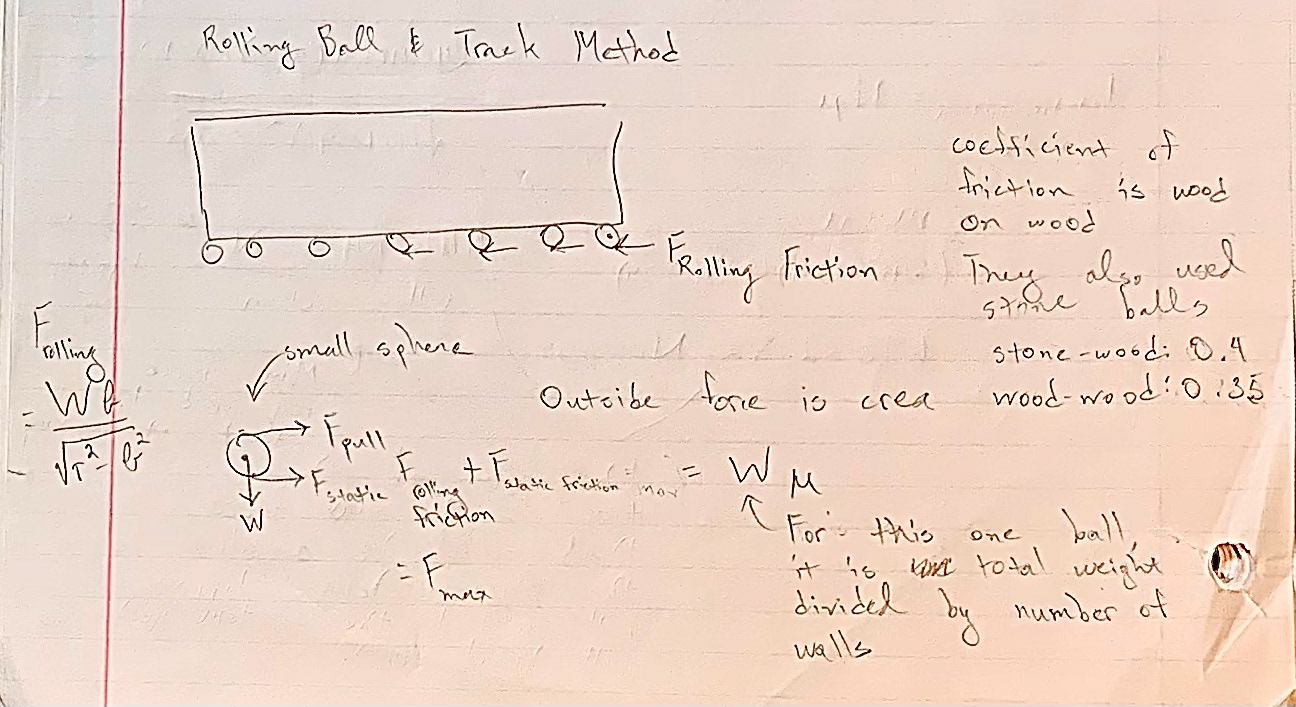 Rolling Ball & Track Method
coefficient of
friction is wood
on wood
F Rolling Friction
They also used
stone balls
stone-wood: 0.4
wood-wood: 0.35
small sphere
Outside force is crea
F rolling
= W b / √r² - b²
F pull
F static
W
F rolling friction + F static friction max = W μ
= F max
For this one ball,
it is total weight
divided by number of
walls